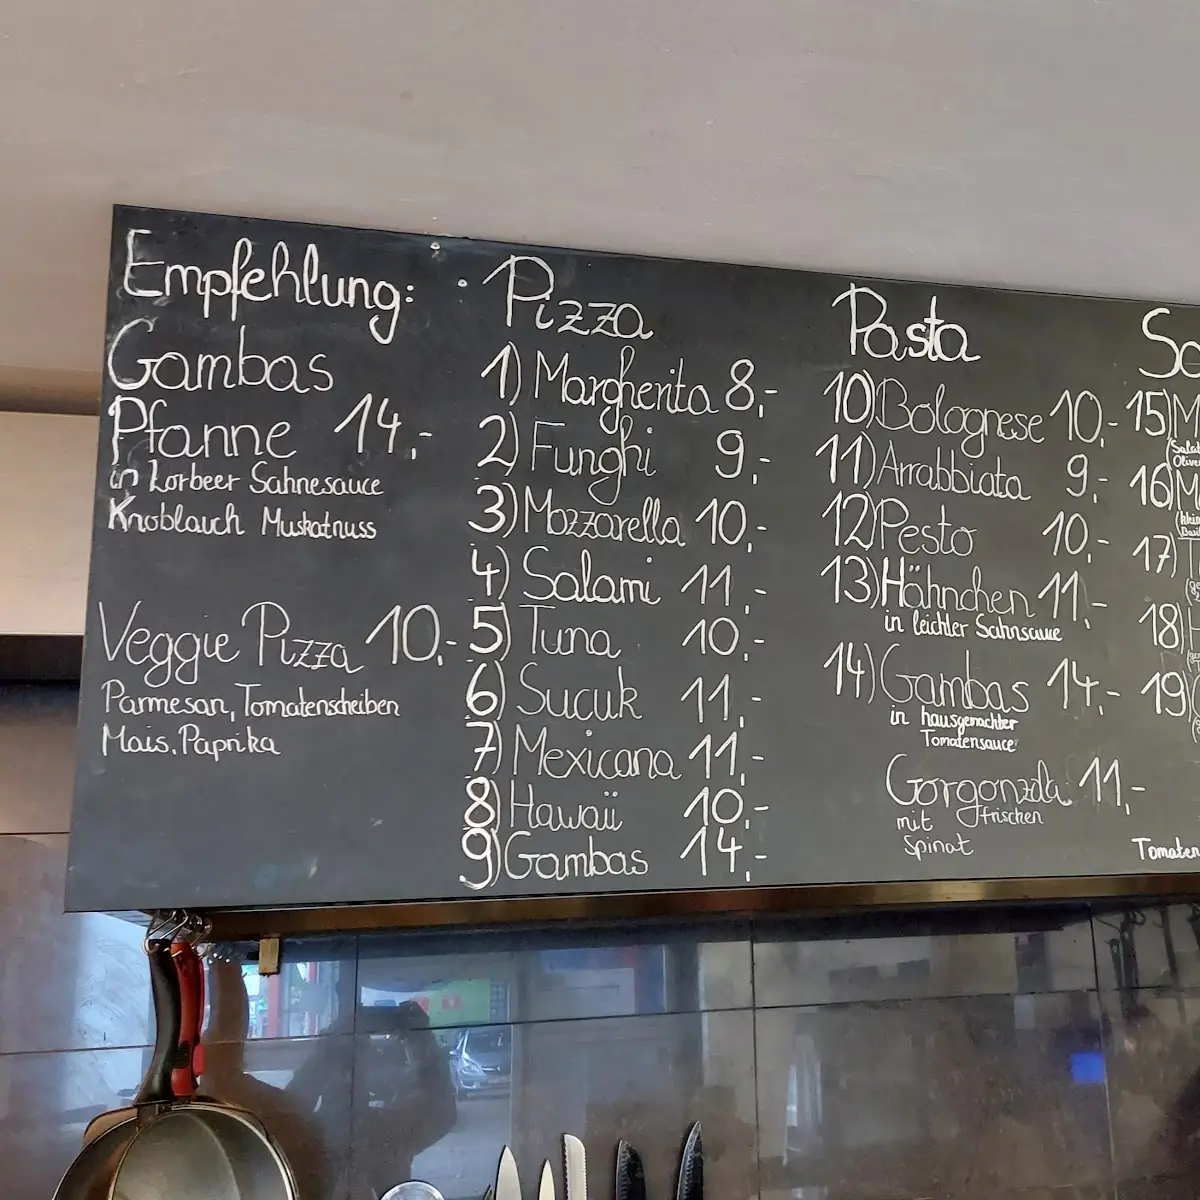 Empfehlung:
Gambas
Pfanne 14,-
in Lorbeer Sahnesauce
Knoblauch Muskatnuss
Veggie Pizza 10,-
Parmesan, Tomatenscheiben
Mais, Paprika
Pizza
1) Margherita 8,-
2) Funghi 9,-
3) Mozzarella 10,-
4) Salami 11,-
5) Tuna 10,-
6) Sucuk 11,-
7) Mexicana 11,-
8) Hawaii 10,-
9) Gambas 14,-
Pasta
10) Bolognese 10,-
11) Arrabbiata 9,-
12) Pesto 10,-
13) Hähnchen 11,-
in leichter Sahnsauce
14) Gambas 14,-
in hausgemachter
Tomatensauce
Gorgonzola 11,-
mit frischen
Spinat
15)
16)
17)
18)
19)
Tomaten